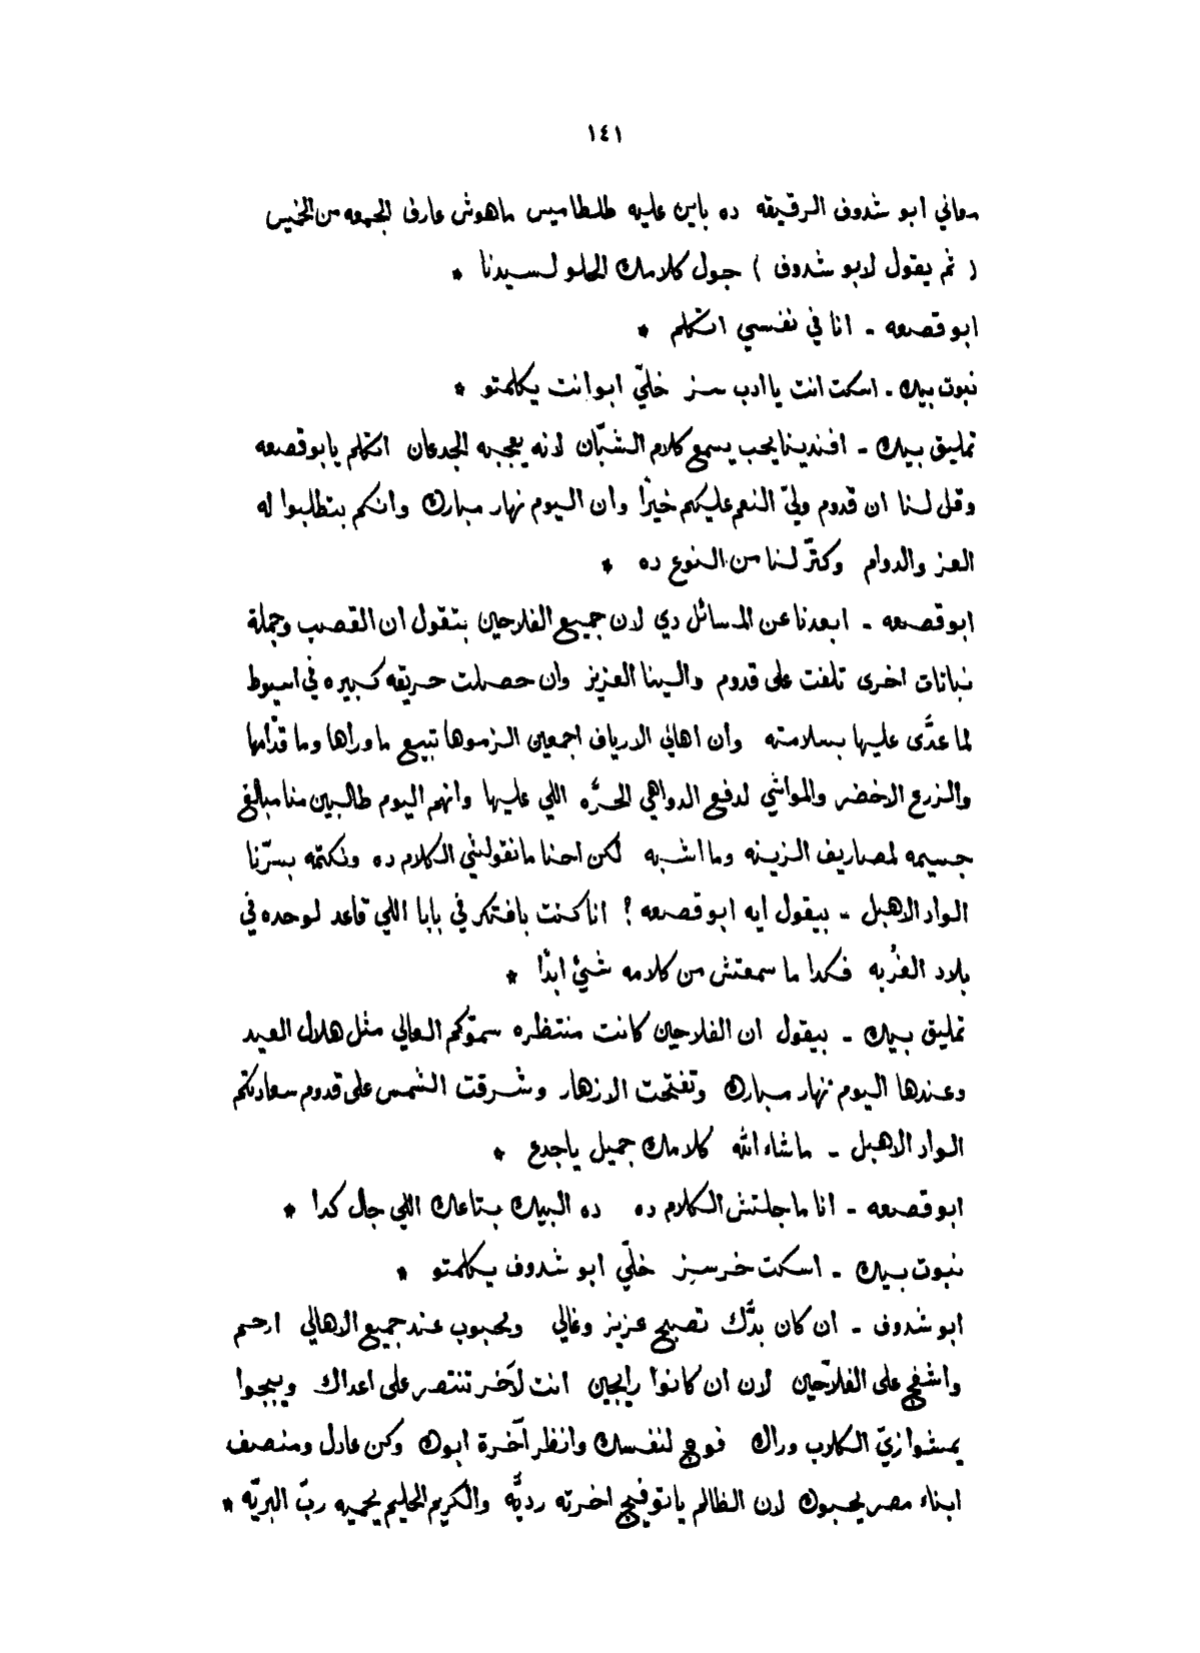 ١٤١
معاني ابو شدوف الرقيقه ده باين عليه طلطاميس ماهوش عارف الجمعه من الخميس
( ثم يقول لابو شدوف ) جول كلامك الحلو لسيدنا *
ابو قصعه - انا في نفسي اتكلم *
نبوت بيك - اسكت انت يا ادب سز خليّ ابوانت يكلمتو *
تمليق بيك - افندينا يحب يسمع كلام الشبّان لانه يعجبه الجدعان اتكلم يا بو قصعه
وقل لنا ان قدوم وليّ النعم عليكم خيرًا وان اليوم نهار مبارك وانكم بتطلبوا له
العز والدوام وكترّ لنا من النوع ده *
ابو قصعه - ابعدنا عن المسائل دي لان جميع الفلاحين بتقول ان القصب وجملة
نباتات اخرى تلفت على قدوم والينا العزيز وان حصلت حريقه كبيره في اسيوط
لما عدَّى عليها بسلامته وان اهالي الارياف اجمعين الزموها تبيع ماوراها وما قدّامها
والزرع الاخضر والمواشي لدفع الدواهي الحرَّه اللي عليها وانهم اليوم طالبين منا مبالغ
جسيمه لمصاريف الزينه وما اشبه لكن احنا مانقولشي الكلام ده ونكتمه بسرّنا
الواد الاهبل - بيقول ايه ابو قصعه ؟ انا كنت بافتكر في بابا اللي قاعد لوحده في
بلاد الغُربه فكدا ما سمعتش من كلامه شيئ ابدًا *
تمليق بيك - بيقول ان الفلاحين كانت منتظره سموّكم العالي مثل هلال العيد
وعندها اليوم نهار مبارك وتفتحّت الازهار وشرقت الشمس على قدوم سعادتكم
الواد الاهبل - ماشاء الله كلامك جميل ياجدع *
ابو قصعه - انا ما جلتش الكلام ده ده البيك بتاعك اللي جال كدا *
نبوت بيك - اسكت خرسيز خليّ ابو شدوف يكلمتو *
ابو شدوف - ان كان بدَّك تصبح عزيز وغالي ومحبوب عند جميع الاهالي ارحم
واشفق على الفلاّحين لان ان كانوا رابحين انت لآخر تنتصر على اعداك ويبجوا
يمشوا زيّ الكلاب وراك فوق لنفسك وانظر آخرة ابوك وكن عادل ومنصف
ابناء مصر يحبوك لان الظالم ياتوفيج اخرته رديَّه والكريم الحليم يحميه ربّ البريّه *